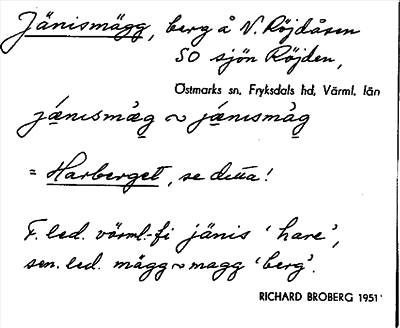 Jänismägg, berg å V. Röjdåsen
SO sjön Röjden,
Östmarks sn, Fryksdals hd, Värml. län
jänısmäg ~ jänısmåg
= Harberget, se detta!
F. led. värml.-fi jänis 'hare',
sen. led. mägg ~ magg 'berg'.
RICHARD BROBERG 1951